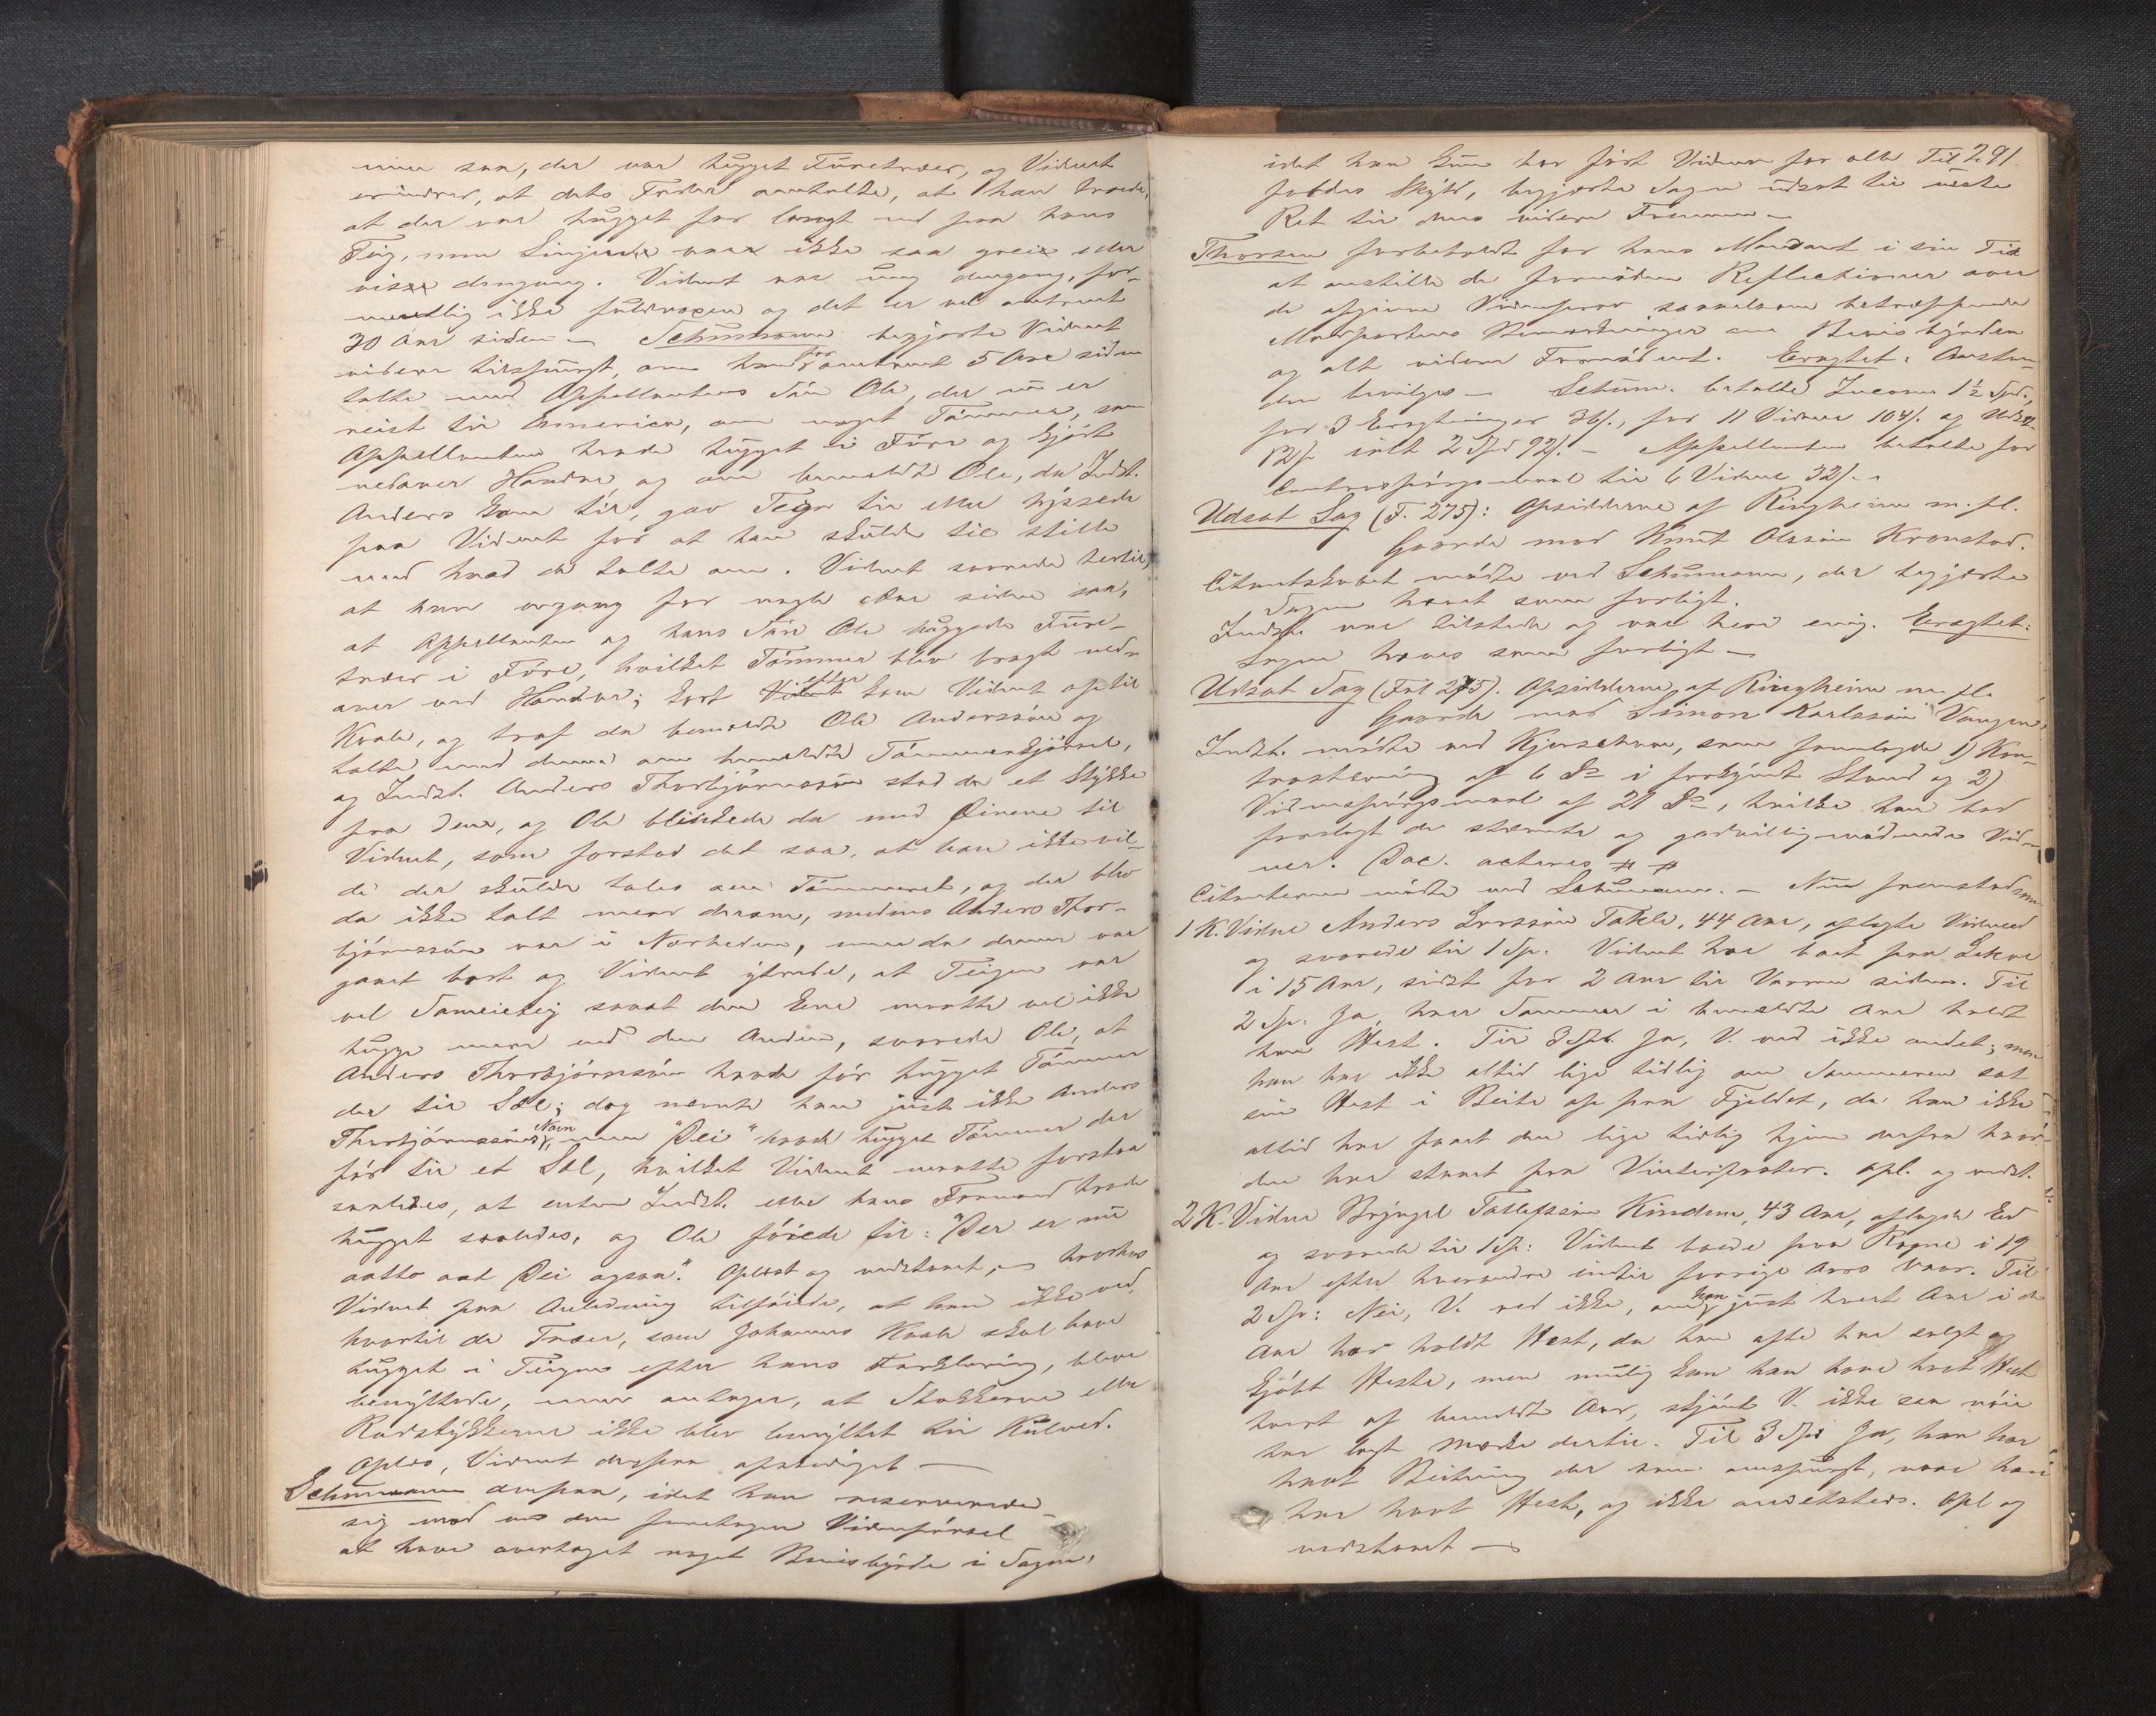 mine saa, der var hugget Furetræer, og Vidnet
erindrer, at dets Fader antalte, at han troede,
at der var hugget for langt ind paa hans
Teig, men Linjerne var ikke saa greie eller
visse dengang. Vidnet var ung dengang, for-
mentlig ikke fuldvoxen og det er vel omtrent
30 Aar siden. — Schumann begjærte Vidnet
videre tilspurgt, om han for omtrent 5 Aar siden
talte med Appellantens Søn Ole, der nu er
reist til America, om noget Tømmer, som
Appellanten havde hugget i Føre og kjørt
nedover Haadne og om bemeldte Ole, da Indst.
Anders kom til, gav Tegn til eller hyssede
paa Vidnet for at han skulde tie stille
med hvad de talte om. Vidnet svarede hertil,
at han engang for nogle Aar siden saa,
at Appellanten og hans Søn Ole huggede Fure-
træer i Føre, hvilket Tømmer blev bragt ned-
over ved Handne; kort efter kom Vidnet op til
Kvale, og traf da bemeldte Ole Andersson og
talte med denne om bemeldte Tømmerkjørsel,
og Indst. Anders Thorbjørnssøn stod da et Stykke
fra dem, og Ole blinkede da med Øinene til
Vidnet, som forstod det saa, at han ikke vil-
de der skulde tales om Tømmeret, og der blev
da ikke talt mere derom, medens Anders Thor-
bjørnssøn var i Nærheden, men da denne var
gaaet bort og Vidnet ytrede, at Teigen var
vel Sameieteig saaat den Ene maatte vel ikke
hugge mere end den Anden, svarede Ole, at
Anders Thorbjørnssøn havde før hugget Tømmer
der til Sæl; dog nævnte han just ikke Anders
Thorbjørnssøns Navn men "Dei" havde hugget Tømmer der
før til et Sæl, hvilket Vidnet maatte forstaa
saaledes, at enten Indst. eller hans Formand havde
hugget saaledes, og Ole føiede til: "Der er nu
aatte aat Dei ogsaa". Oplæst og vedtaget, — hvorhos
Vidnet paa Anledning tilføiede, at han ikke ved,
hvortil de Træer, som Johannes Kvale skal have
hugget i Teigen efter hans Forklaring, bleve
benyttede, men antager, at Stokkerne eller
Rodstykkerne ikke blev benyttet til Kulved.
Oplæs, Vidnet derpaa afskediget —
Schumann derpaa, idet han reserverede
sig mod ved den foretagne Vidneførsel
at have overtaget noget Bevisbyrde i Sagen,
idet han kun har ført Vidner for alle Til 291.
foldes Skyld, begjærte Sagen udsat til næste
Ret til dens videre Fremme —
Thorsen forbeholdt for hans Mandant i sin Tid
at anstille de fornødne Reflectioner over
de afgivne Vidneprov saavelsom betræffende
Modpartens Bemærkninger om Bevisbyrden
og alt videre Fornødent. Eragtet: Ansten-
den bevilges — Schum. betalte Incam 1½ Spd.,
for 3 Eragtninger 36/., for 11 Vidner 104/. og Uds.
12/ ialt 2 Spd 92/. — Appellanten betalte for
Contraspørgsmaal til 6 Vidner 32/. —
Udsat Sag (F. 275): Opsidderne af Ringheim m. fl.
Gaarde mod Knut Olsson Kronstad.
Citantskabet mødte ved Schumann, der begjærte
Sagen hævet som forligt.
Indst. var tilstede og var heri enig. Eragtet:
Sagen hæves som forligt —
Udsat Sag (Fol 275). Opsidderne af Ringheim m. fl.
Gaarde mod Simon Karlsson Vangen,
Indst. mødte ved Kjerschow, som fremlagde 1) Kon-
trastevning af 6 Ds i forkyndt Stand og 2)
Vidnespørgsmaal af 21 Ds, hvilke han bad
forelagt de stævnte og godvillig mødende Vid-
ner. Doc. acteres # #
Citanterne mødte ved Schumann. — Nu fremstod som
1 K. Vidne Anders Larsson Takle, 44 Aar, aflagte Vidneed
og svarede til 1 Sp. Vidnet har boet paa Lekve
i 15 Aar, sidst for 2 Aar til Vaaren siden. Til
2 Sp: Ja, hver Sommer i bemeldte Aar havde
han Hest. Til 3 Sp. Ja, V. ved ikke andet; men
han har ikke altid lige tidlig om Sommeren sat
sin Hest i Beite op paa Fjeldet, da han ikke
altid har faaet den lige tidlig hjem derfra hvor
den har staaet paa Vinterfoster. Opl. og vedst.
2 K. Vidne Brynjel Tollefsson Kinden, 43 Aar, aflagde Ed
og svarede til 1 Sp: Vidnet boede paa Rogne i 19
Aar efter hverandre indtil forrige Aars Vaar. Til
2 Sp: Nei, V. ved ikke, om han just hvert Aar i de
Aar har holdt Hest, da han ofte har solgt og
kjøbt Heste, men mulig kan han have havt Hest
hvert af bemeldte Aar, skjønt V. ikke saa nøie
har lagt Mærke dertil. Til 3 Sp: Ja, han har
havt Beitning der som omspurgt, naar han
har havt Hest, og ikke andetsteds. Opl og
vedtaget —